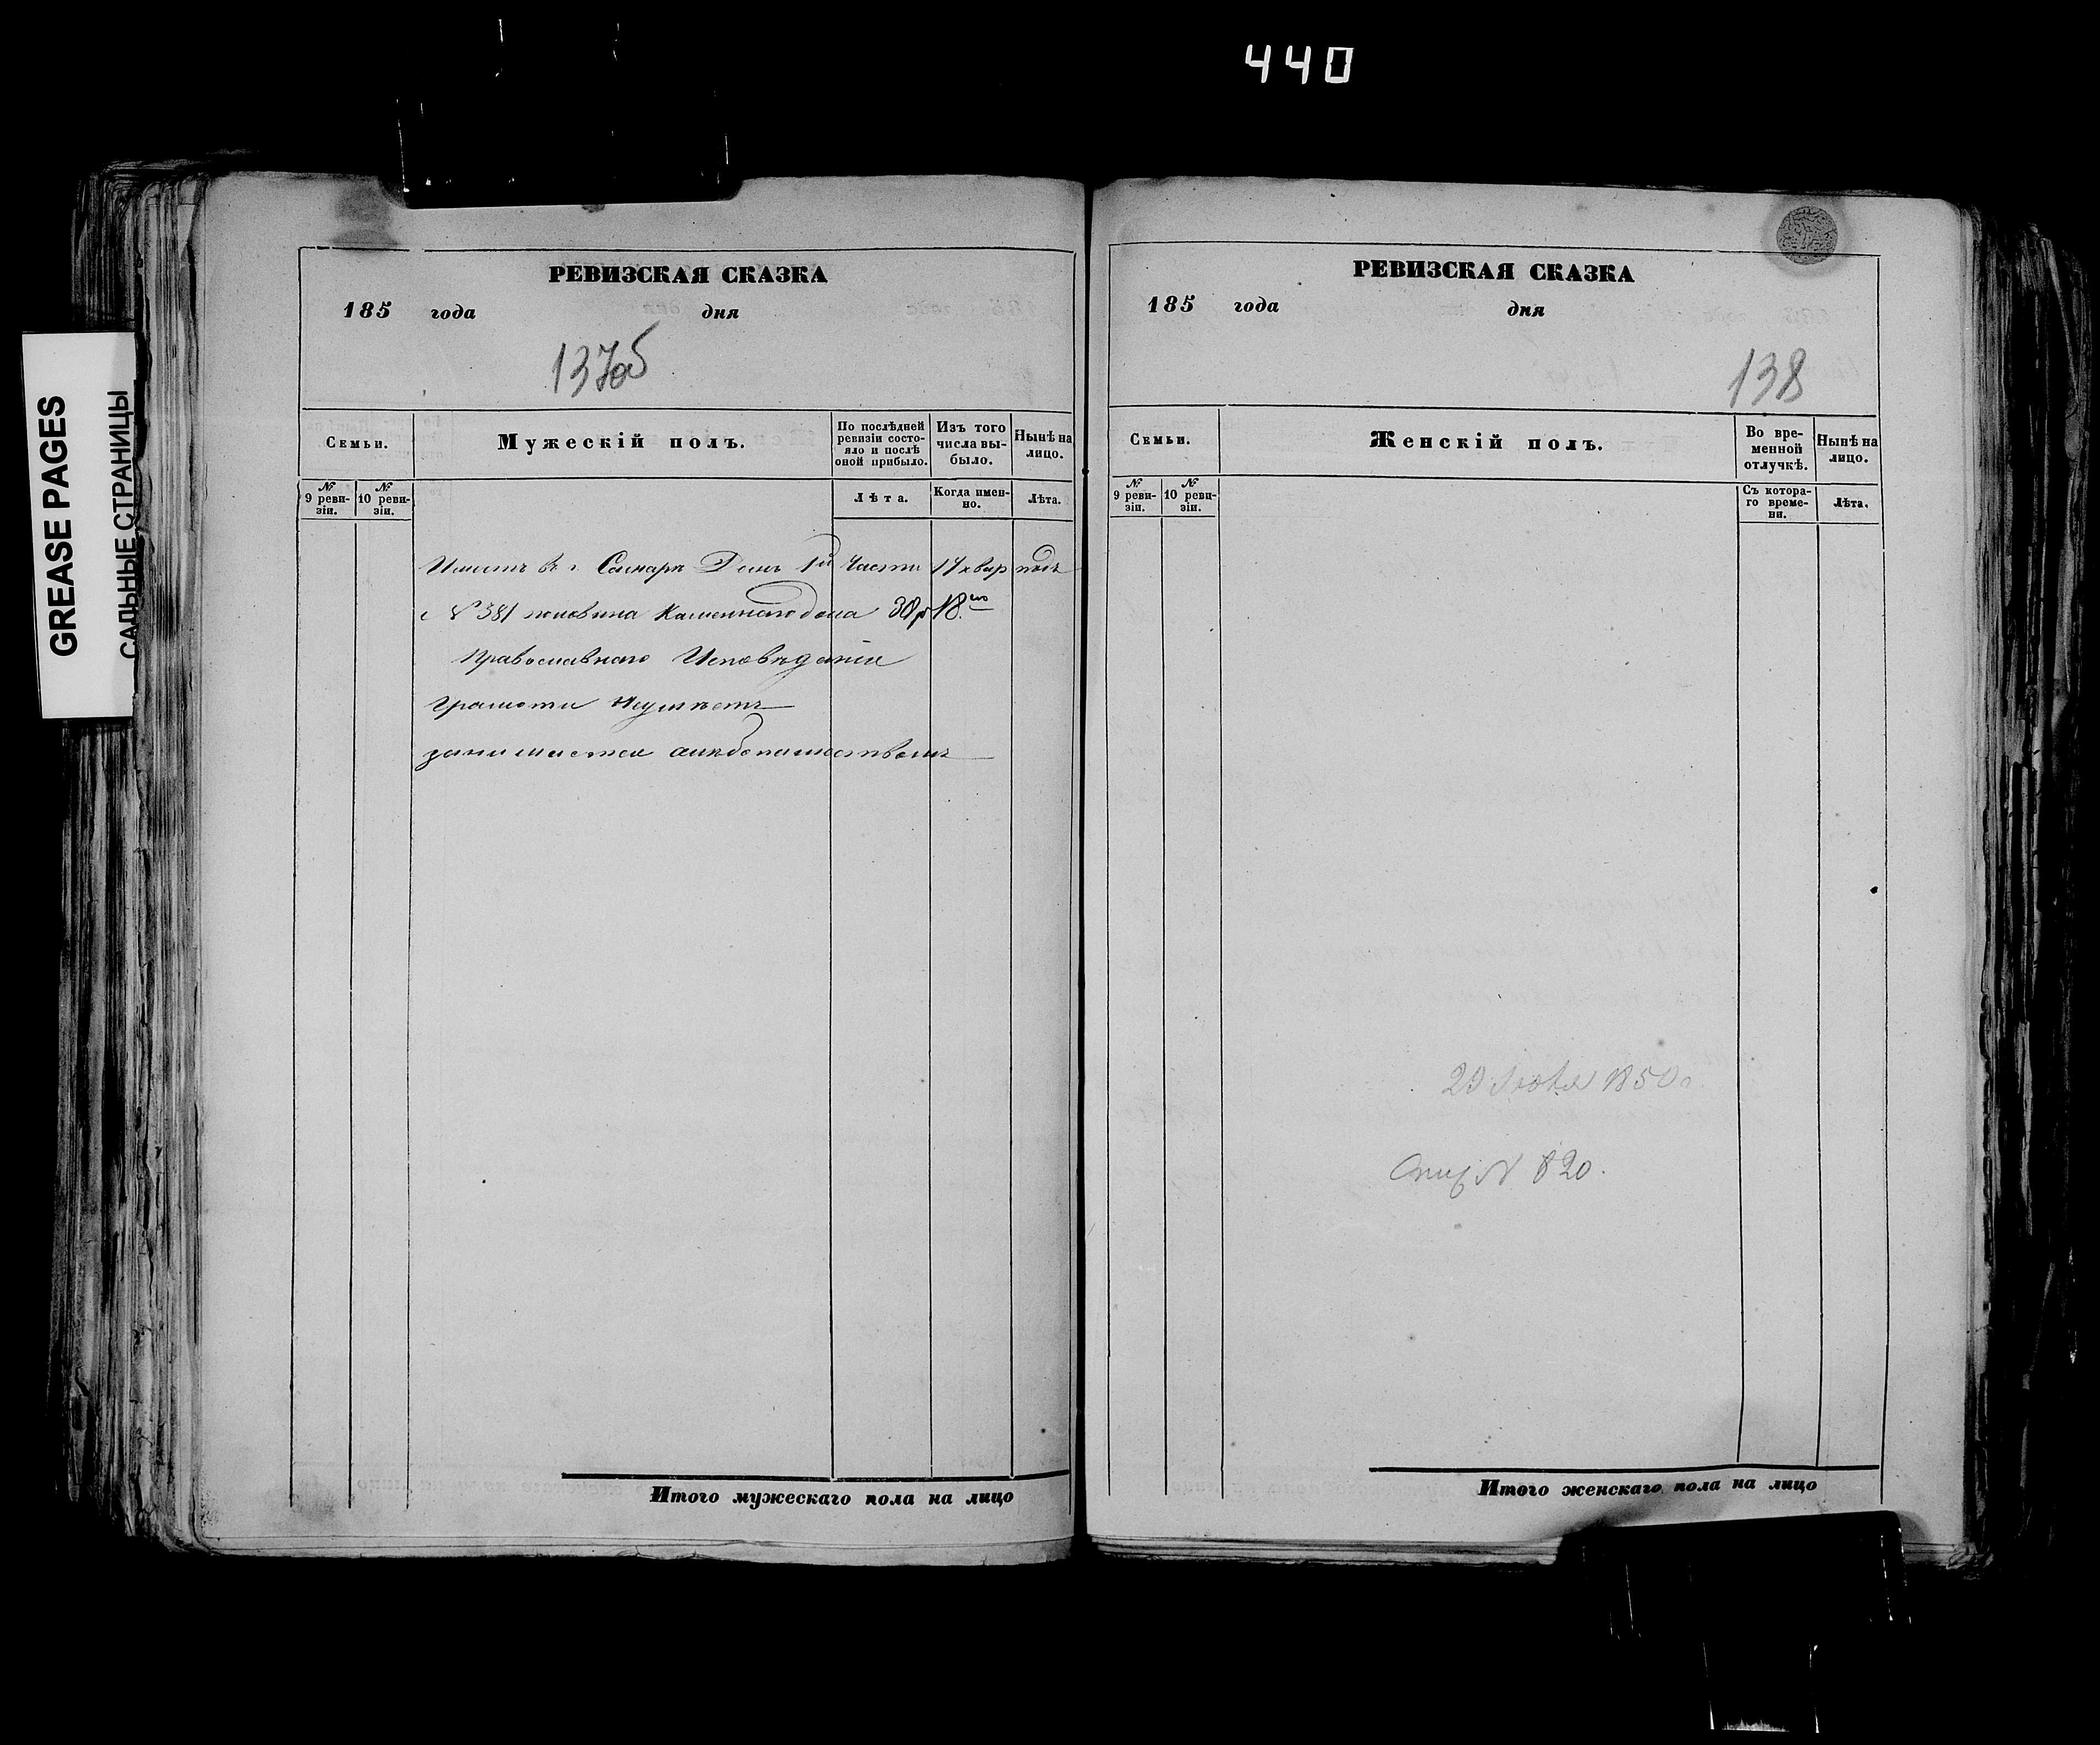 440
GREASE PAGES
САЛЬНЫЕ СТРАНИЦЫ
РЕВИЗСКАЯ СКАЗКА
185 года дня
137об
Семьи.
Мужескій полъ.
По послѣдней ревизіи состояло и послѣ оной прибыло.
Изъ того числа выбыло.
Нынѣ на лицо.
№ 9 ревизіи.
№ 10 ревизіи.
Лѣта.
Когда именно.
Лѣта.
Имѣетъ въ г Самарѣ Домъ 1й Части 17 квар подъ
N 381 половина Каменного дома 30р
Православнаго Исповѣданія
Грамоти Неумѣетъ
занимается хлѣбопашествомъ
Итого мужескаго пола на лицо
РЕВИЗСКАЯ СКАЗКА
185 года дня
138
Семьи.
Женскій полъ.
Во временной отлучкѣ.
Нынѣ на лицо.
№ 9 ревизіи.
№ 10 ревизіи.
Съ котораго времени.
Лѣта.
1850г
N 820.
Итого женскаго пола на лицо